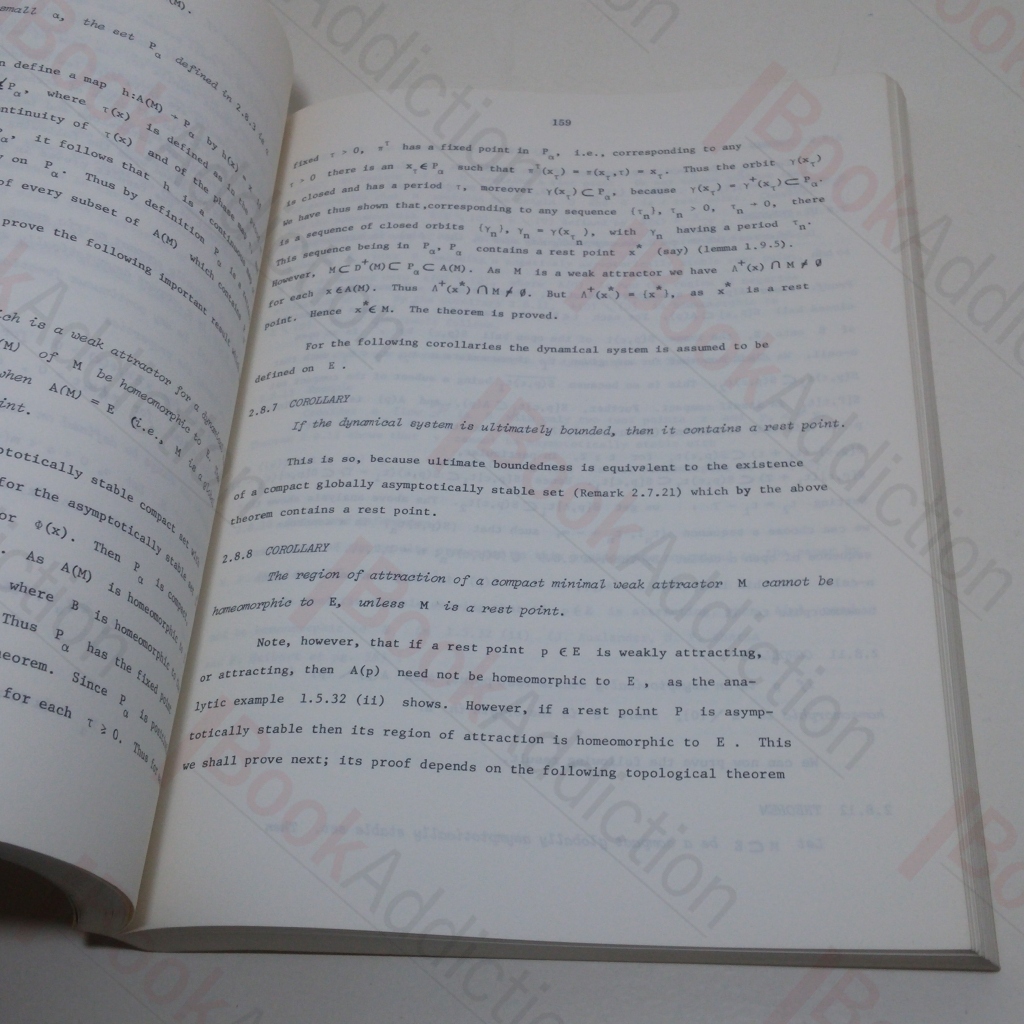 (M).
small α, the set P_α defined in 2.8.3 is a
n define a map h:A(M) → P_α by h(x) = x if
P_α, where τ(x) is defined as in the
ntinuity of τ(x) and of the phase map
P_α, it follows that h is a continuous
on P_α. Thus by definition P_α is a
of every subset of A(M) which contains
prove the following important result
ich is a weak attractor for a dynamical
(M) of M be homeomorphic to E.
when A(M) = E (i.e., M is a
int.
ptotically stable compact set with
for the asymptotically stable set
or Φ(x). Then P_α is compact,
. As A(M) is homeomorphic to
where B is homeomorphic to
Thus P_α has the fixed point
heorem. Since P_α is positively
for each τ ≥ 0. Thus for
159
fixed τ > 0, π^τ has a fixed point in P_α, i.e., corresponding to any
τ > 0 there is an x_τ ∈ P_α such that π^τ(x_τ) = π(x_τ,τ) = x_τ. Thus the orbit γ(x_τ)
is closed and has a period τ, moreover γ(x_τ) ⊂ P_α, because γ(x_τ) = γ⁺(x_τ) ⊂ P_α.
We have thus shown that, corresponding to any sequence {τ_n}, τ_n > 0, τ_n → 0, there
is a sequence of closed orbits {γ_n}, γ_n = γ(x_τ_n), with γ_n having a period τ_n.
This sequence being in P_α, P_α contains a rest point x* (say) (lemma 1.9.5).
However, M ⊂ D⁺(M) ⊂ P_α ⊂ A(M). As M is a weak attractor we have Λ⁺(x) ∩ M ≠ ∅
for each x ∈ A(M). Thus Λ⁺(x*) ∩ M ≠ ∅. But Λ⁺(x*) = {x*}, as x* is a rest
point. Hence x* ∈ M. The theorem is proved.
For the following corollaries the dynamical system is assumed to be
defined on E .
2.8.7 COROLLARY
If the dynamical system is ultimately bounded, then it contains a rest point.
This is so, because ultimate boundedness is equivalent to the existence
of a compact globally asymptotically stable set (Remark 2.7.21) which by the above
theorem contains a rest point.
2.8.8 COROLLARY
The region of attraction of a compact minimal weak attractor M cannot be
homeomorphic to E, unless M is a rest point.
Note, however, that if a rest point p ∈ E is weakly attracting,
or attracting, then A(p) need not be homeomorphic to E , as the ana-
lytic example 1.5.32 (ii) shows. However, if a rest point P is asymp-
totically stable then its region of attraction is homeomorphic to E . This
we shall prove next; its proof depends on the following topological theorem
BookAddiction